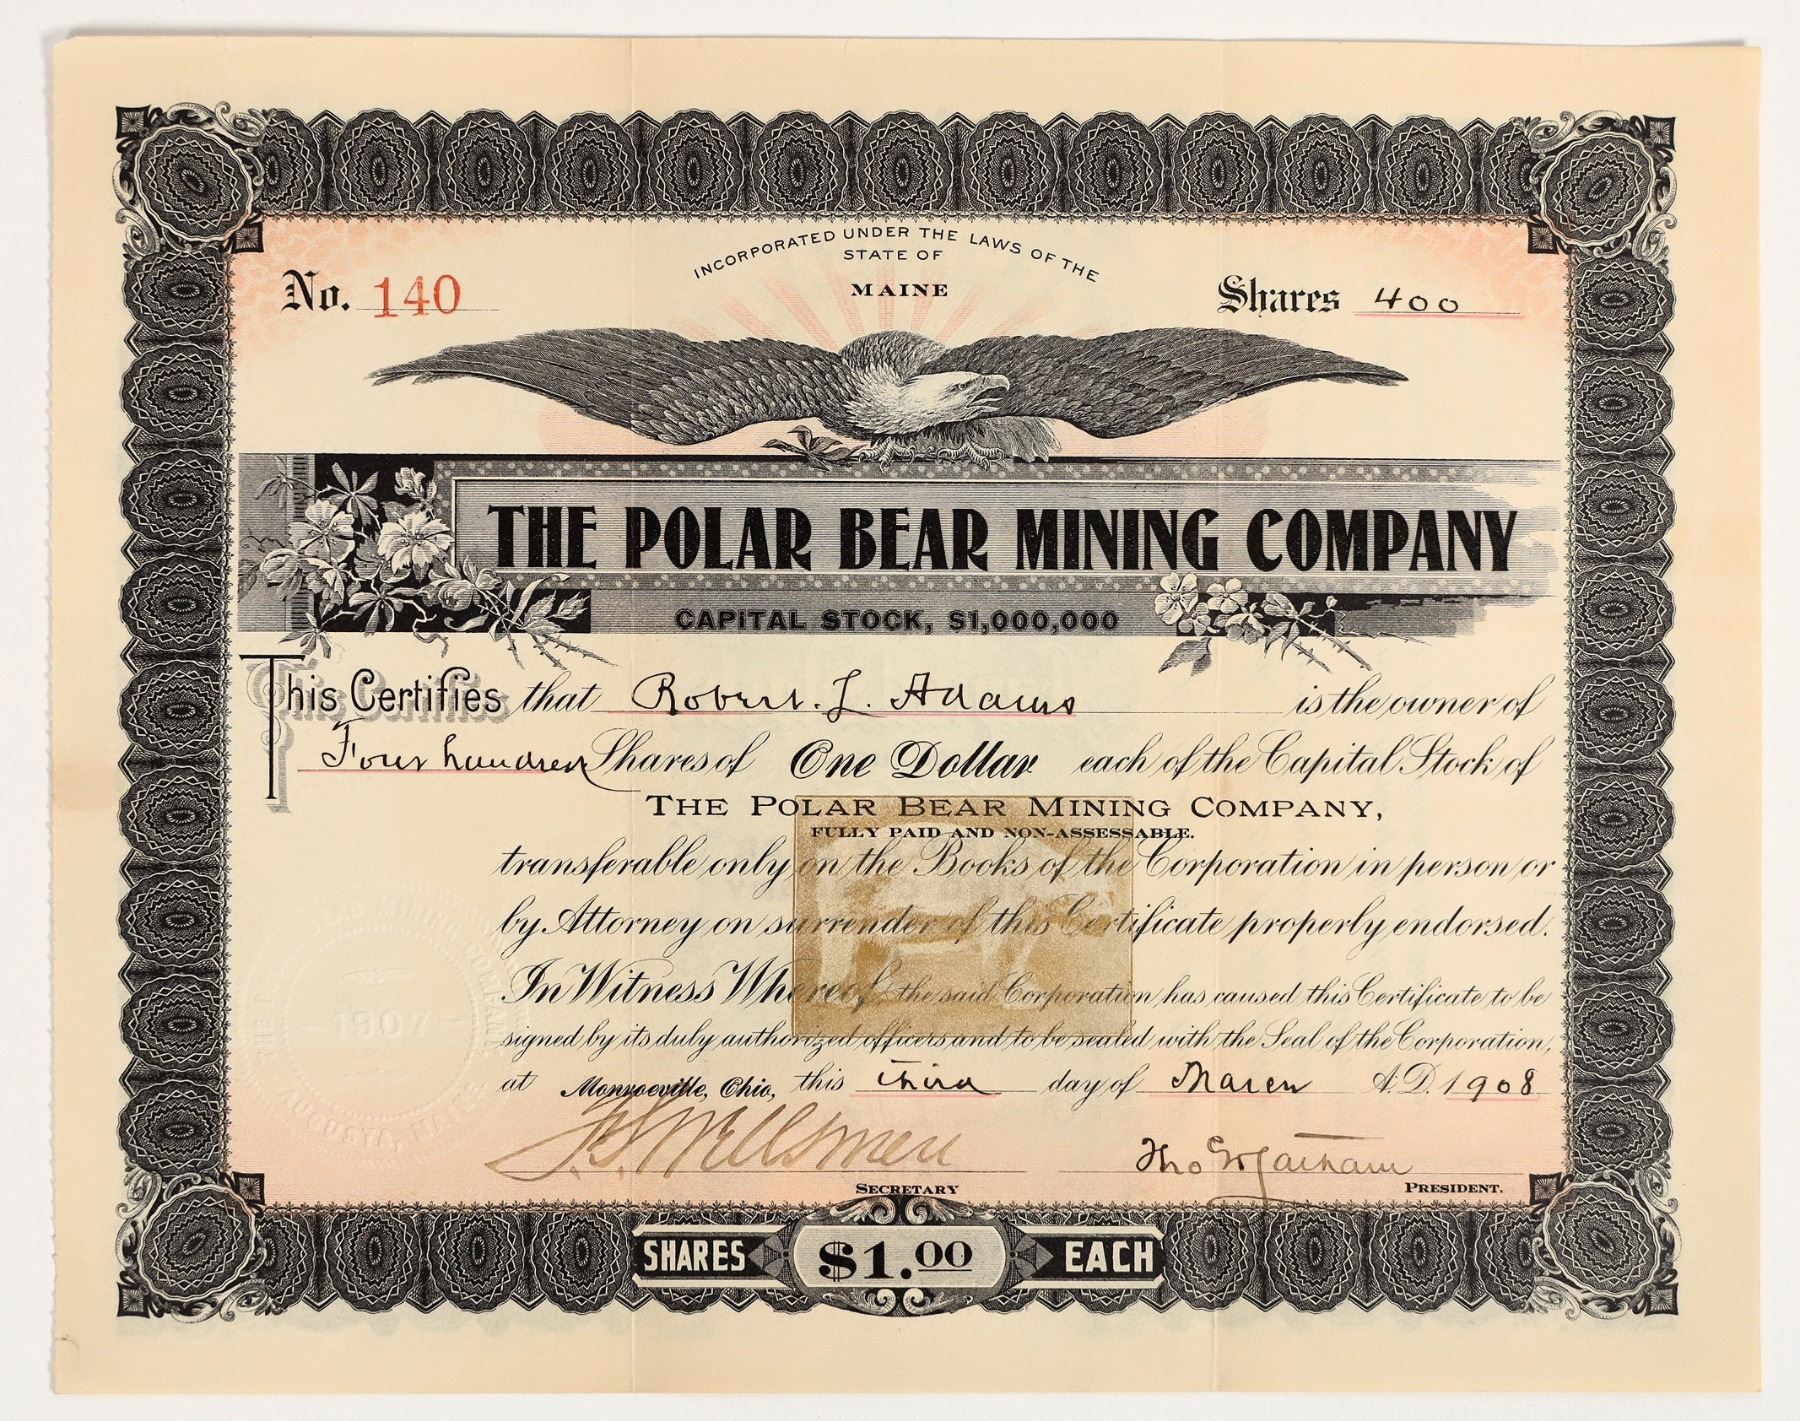 INCORPORATED UNDER THE LAWS OF THE
STATE OF
MAINE
No. 140
Shares 400
THE POLAR BEAR MINING COMPANY
CAPITAL STOCK, $1,000,000
This Certifies that Robert. L. Adams is the owner of
Four hundred Shares of One Dollar each of the Capital Stock of
THE POLAR BEAR MINING COMPANY,
FULLY PAID AND NON-ASSESSABLE.
transferable only on the Books of the Corporation in person or
by Attorney on surrender of this Certificate properly endorsed.
In Witness Whereof, the said Corporation has caused this Certificate to be
signed by its duly authorized officers and to be sealed with the Seal of the Corporation,
at Monroeville, Ohio, this third day of March A.D. 1908
1907
AUGUSTA, MAINE
SECRETARY
PRESIDENT.
SHARES $1.00 EACH